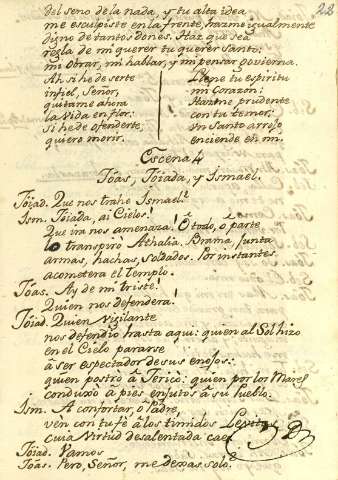 22
del seno de la nada, y tu alta idea
me esculpiste en la frente, hazme igualmente
digno de tantos dones. Haz que sea
regla de mi querer tu querer santo:
mi obrar, mi hablar, y mi pensar govierna.
Ah si he de serte
infiel, Señor,
quitame ahora
la Vida en flor:
si he de ofenderte,
quiero morir.
Llene tu espiritu
mi Corazon:
Hazme prudente
con tu temor;
Un Santo arrojo
enciende en mi.
Escena 4
Joas, Joiada, y Ismael.
Joiad. Que nos trahe Ismael?
Ism. Joiada, ai Cielos!
Que ira nos amenaza! O todo, ò parte
lo transpirò Athalia. Brama, junta
armas, hachas, soldados. Por instantes
acometera el Templo.
Joas. Ay de mi triste!
Quien nos defenderà!
Joiad. Quien Vigilante
nos defendiò hasta aqui: quien al Sol hizo
en el Cielo pararse
à ser espectador de sus enojos:
quien postrò à Jericò: quien por los Mares
conduxo à pies enjutos à su Pueblo.
Ism. A confortar, o Padre,
ven con tu fé a los timidos Levitas
cuia Virtud desalentada cae.
Joiad. Vamos
Joas. Pero, Señor, me dexas solo?